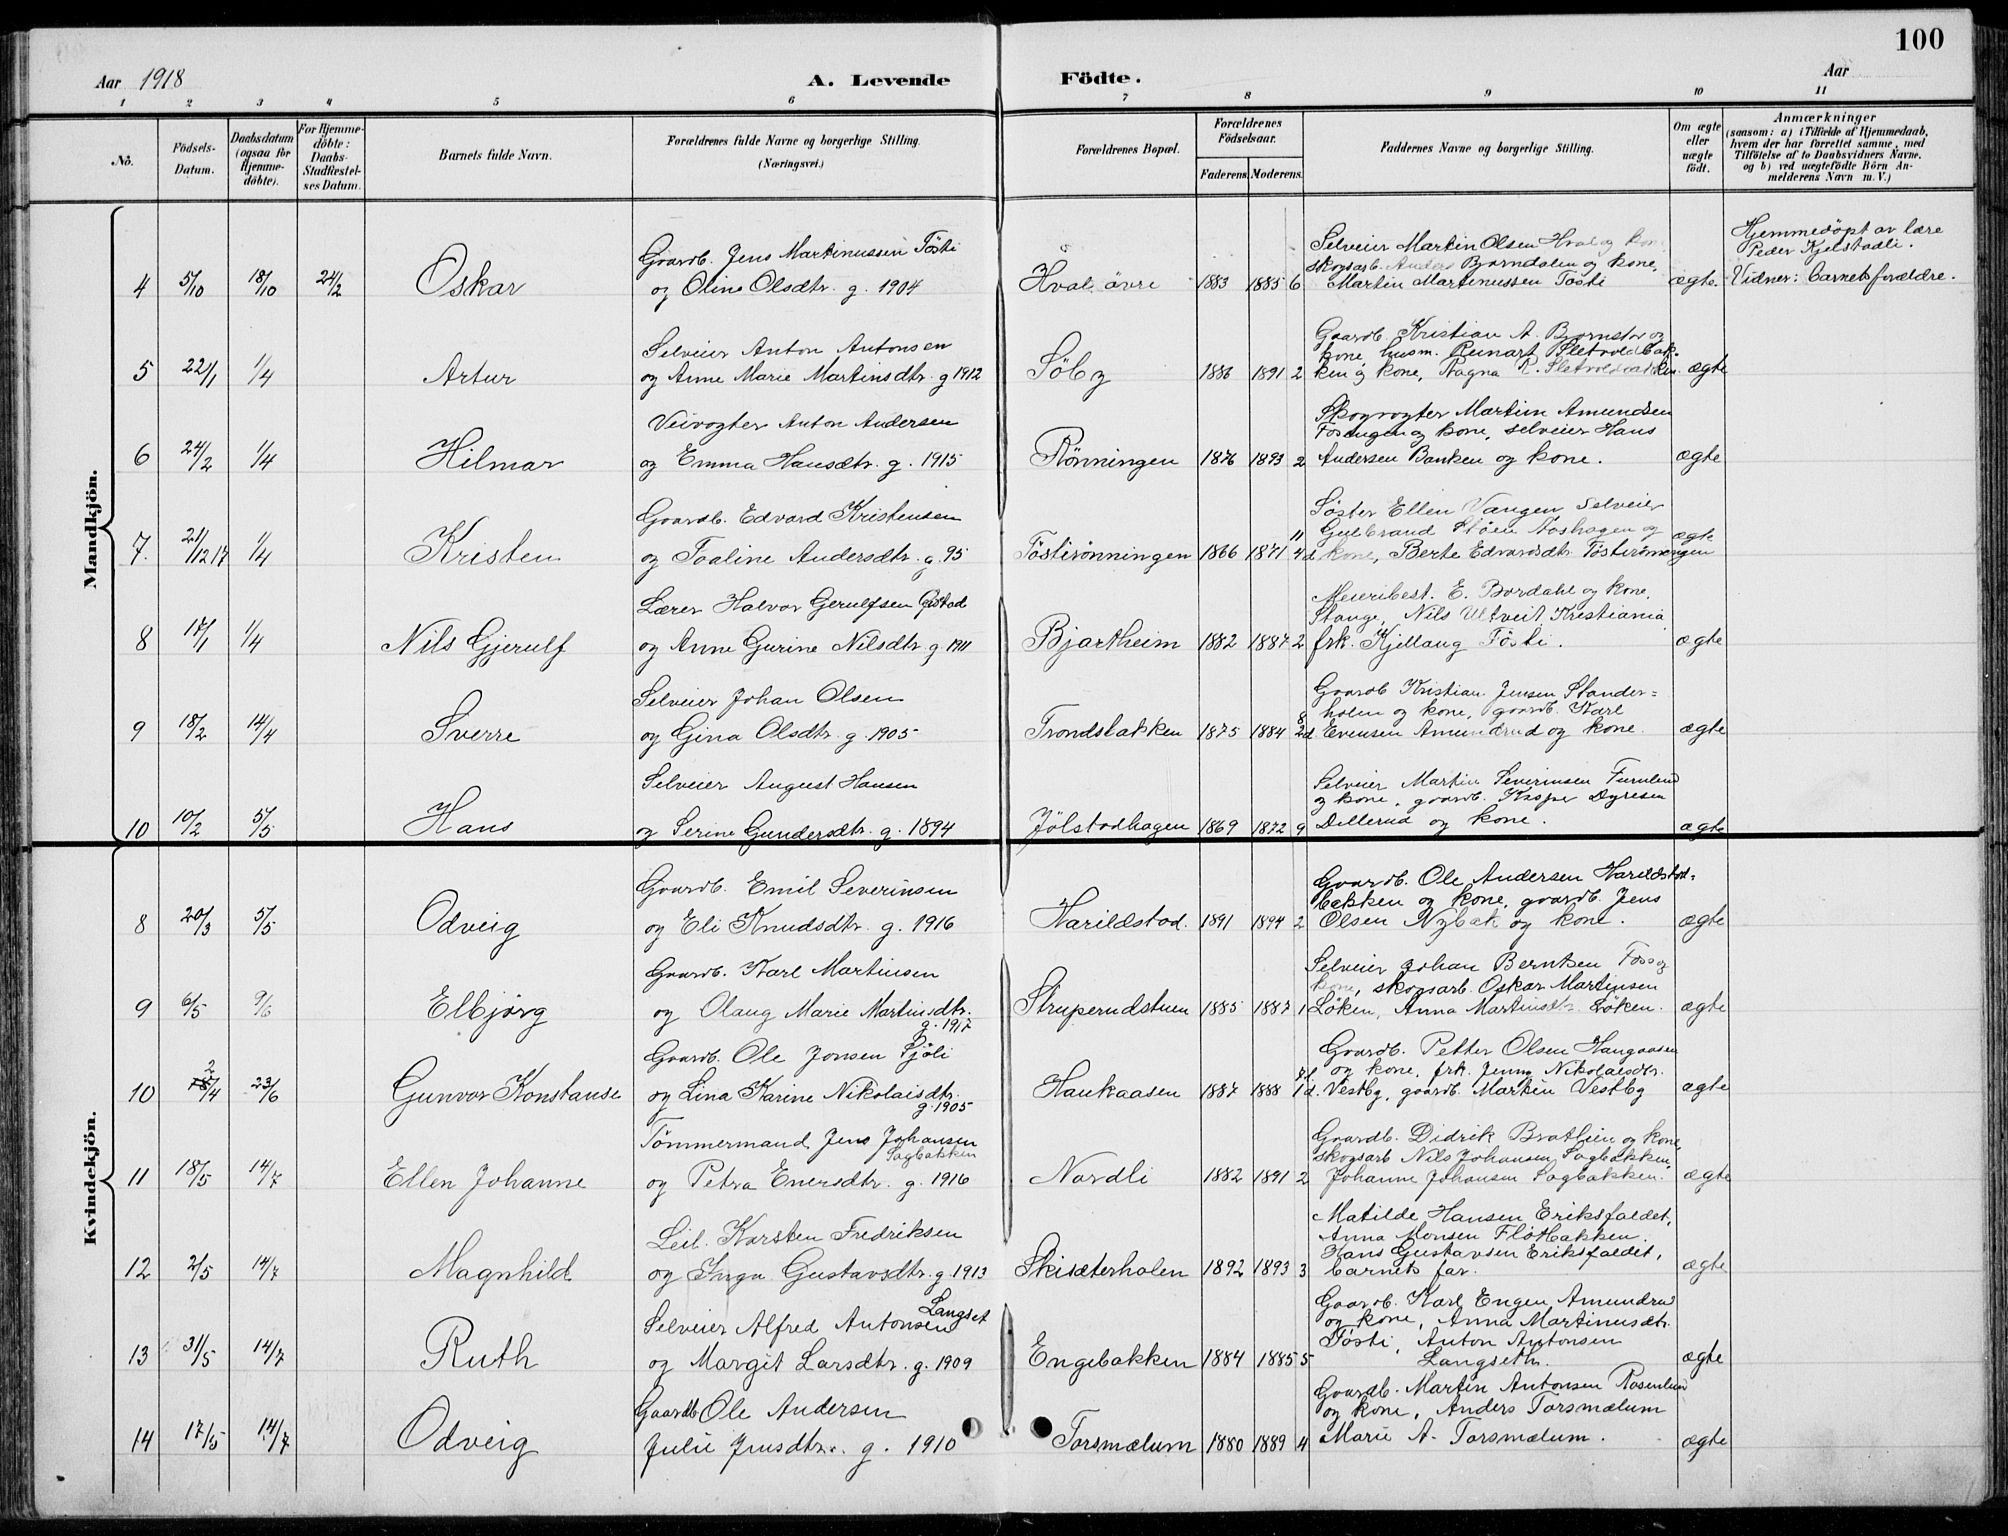 100
Aar 1918
A. Levende Födte.
Aar
1 2 3 4 5 6 7 8 9 10 11
No.
Födsels-Datum.
Daabsdatum (ogsaa for Hjemme-döbte).
For Hjemme-döbte: Daabs-Stadfæstel-ses Datum.
Barnets fulde Navn.
Forældrenes fulde Navne og borgerlige Stilling. (Næringsvei.)
Forældrenes Bopæl.
Forældrenes Födselsaar.
Faderens. Moderens.
Faddernes Navne og borgerlige Stilling.
Om ægte eller uægte födt.
Anmærkninger
(saasom: a) i Tilfælde af Hjemmedaab,
hvem der har forrettet samme, med
Tilföielse af to Daabsvidners Navne,
og b) ved uægtefödte Börn An-
melderens Navn m. V.)
Mandkjön.
Gaardb. Jens Martinussen Tösti
Selveier Martin Olsen Hval og
skogsarb. Bjørndalen og kone,
Hjemmedöpt av lære
Peder Kjelstadli.
4 5/10 18/10 24/2 Oskar og Oline Olsdtr. g. 1904 Hval övre 1883 1885 6 Martin Martinussen Tösti ægte. Vidner: barnets forældre.
Selveier Anton Antonsen
Gaardb. Kristian A. og
kone, husm.
5 22/1 1/4 Artur og Anne Marie Martinsdtr. g 1912 Söby 1886 1891 2 ken og kone, Ragna K. ægte
Veivogter Anton Andersen
Skogvogter Martin Amundsen
og kone, selveier Hans
6 24/2 1/4 Hilmar og Emma Hansdtr. g. 1915 Rönningen 1876 1893 2 Andersen Banken og kone. ægte
Gaardb. Edvard Kristensen
Söster Ellen Vangen, Selveier
Gulbrand og
7. 21/12 17 1/4 Kristen og Toaline Andersdtr. g. 95 Töstirönningen 1866 1871 11 4 d kone, Berte Edvardsdtr. Töstirönningen ægte
Lærer Halvor Gerulfsen
Meieribest. E. Bordahl og kone,
Stange, Nils Ultveit, Kristiania
8 17/1 1/4 Nils Gjerulf og Anne Gurine Nilsdtr. g. 1911 Bjartheim 1882 1887 2 frk. Kjellaug Tösti. ægte
Selveier Johan Olsen
Gaardb Kristian Jensen Stander=
holen og kone, gaardb. Karl
9 18/2 14/4 Sverre og Gina Olsdtr. g. 1905 Trondsbakken 1875 1884 8 2d. Evensen Amundrud og kone. ægte
Selveier August Hansen
Selveier Martin Severinsen Furulund
og kone, gaardb. Kasper Dyresen
10 10/2 5/5 Hans og Serine Gundersdtr. g. 1894 Jölstadhagen 1869 1872 9 Dillerud og kone. ægte
Kvindekjön.
Gaardb. Emil Severinsen
Gaardb. Ole Andersen Harildstad=
bakken og kone, gaardb. Jens
8 20/3 5/5 Odveig og Eli Knudsdtr. g. 1916 Harildstad. 1891 1894 2 Olsen Nybak og kone. ægte
Gaardb. Karl Martinsen
Selveier Johan Berntsen Foss og
kone, skogsarb. Oskar Martinsen
9 6/5 9/6 Elbjørg og Olaug Marie Martinsdtr. g. 1917 Struperudstuen 1885 1887 1 Löken, Anna Martinsdtr. Löken. ægte
Gaardb. Ole Jonsen Sjöli
Gaardb. Petter Olsen Haugaasen
og kone, frk. Jenny Nikolaisdtr.
10 2/4 23/6 Gunvor Konstanse og Lina Karine Nikolaisdtr. g. 1905 Haukaasen 1887 1888 1d. Vestby, gaardb. Martin Vestby ægte
Tömmermand Jens Johansen Sagbakken
Gaardb. Didrik Bratlien og kone,
skogsarb Nils Johansen Sagbakken,
11 18/5 14/7 Ellen Johanne og Petra Enersdtr. g. 1916 Nordli 1882 1891 2 Johanne Johansen Sagbakken. ægte
Leil. Karsten Fredriksen
Matilde Hansen Eriksfaldet,
Anna Monsen Flötbakken.
Hans Gustavsen Eriksfaldet,
12 2/5 14/7 Magnhild og Inga Gustavsdtr. g. 1913 Skisæterholen 1892 1893 3 barnets far. ægte
Selveier Alfred Antonsen Langset
Gaardb. Karl Engen Amundrud
og kone, Anna Martinusdtr.
Tösti, Anton Antonsen
13 31/5 14/7 Ruth og Margit Larsdtr. g. 1909 Engebakken 1884 1885 5 Langseth. ægte
Gaardb Ole Andersen
Gaardb. Martin Antonsen Rosenlund
og kone, Anders Torsmælum
14 17/5 14/7 Odveig Julie Jensdtr. g. 1910 Torsmælum 1880 1889 4 Marie A. Torsmælum. ægte